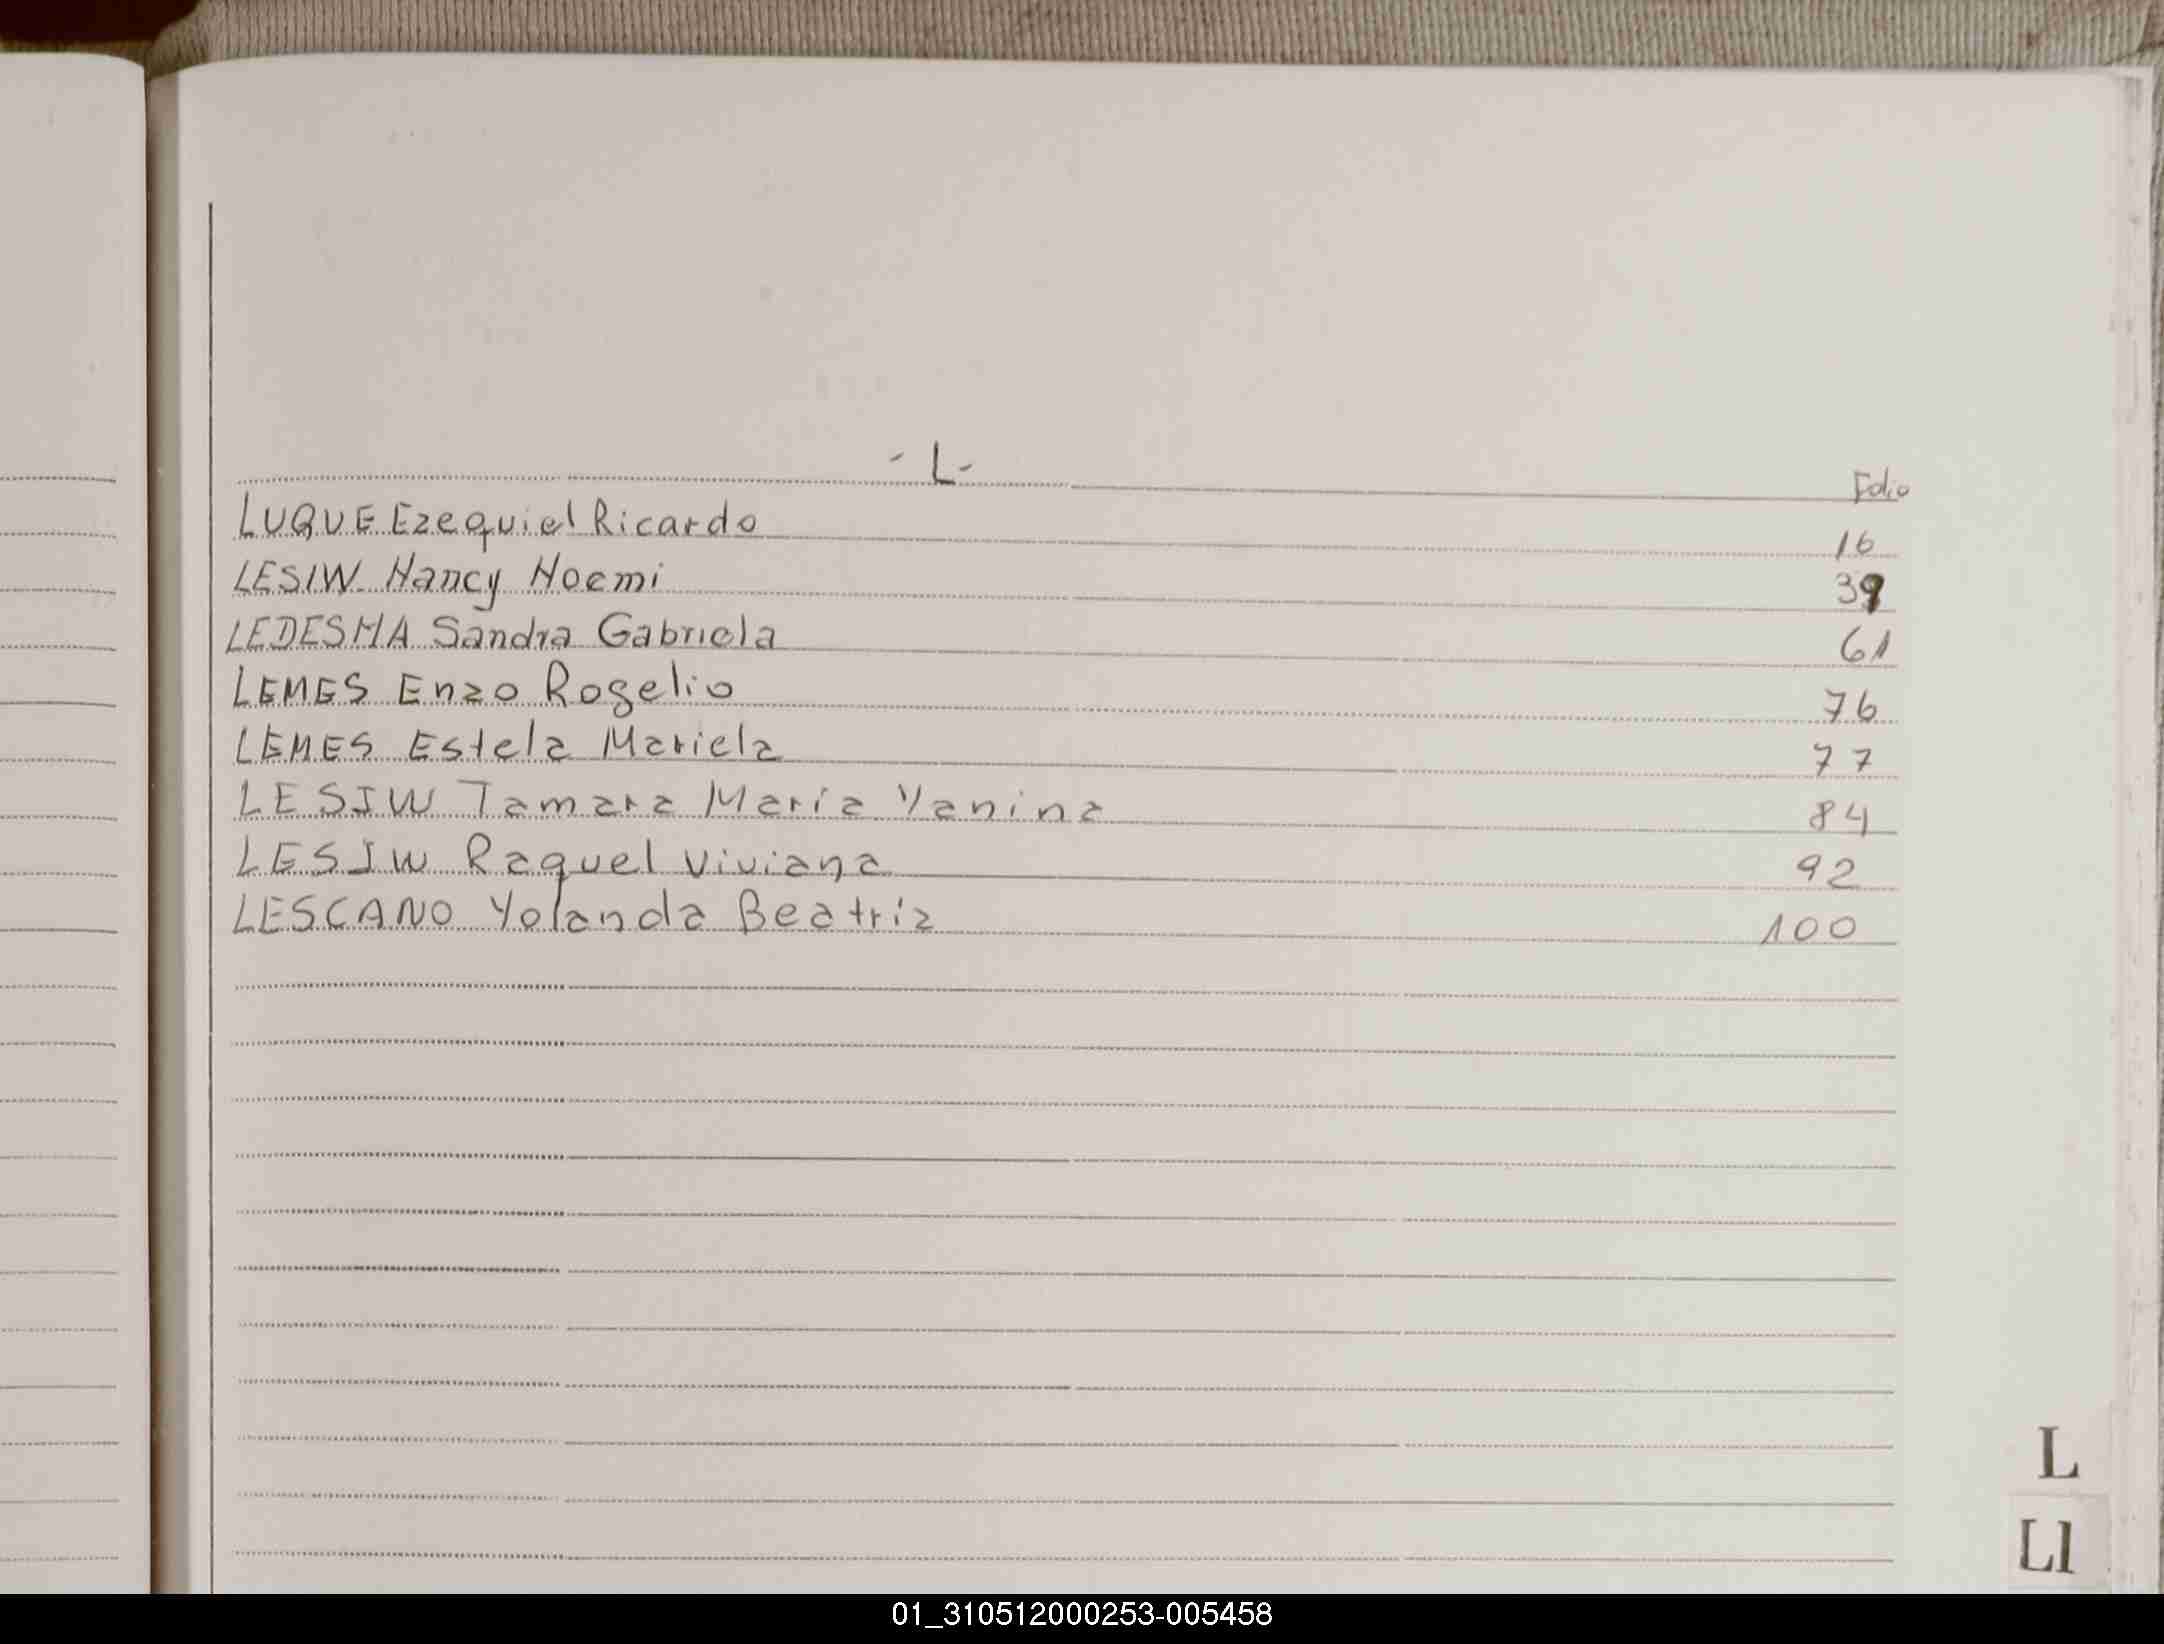 - L -
Folio
LUQUE Ezequiel Ricardo 16
LESIW Nancy Noemi 39
LEDESMA Sandra Gabriela 61
LEMES Enzo Rogelio 76
LEMES Estela Mariela 77
LESIW Tamara María Yanina 84
LESIW Raquel Viviana 92
LESCANO Yolanda Beatríz 100
L
Ll
01_310512000253-005458